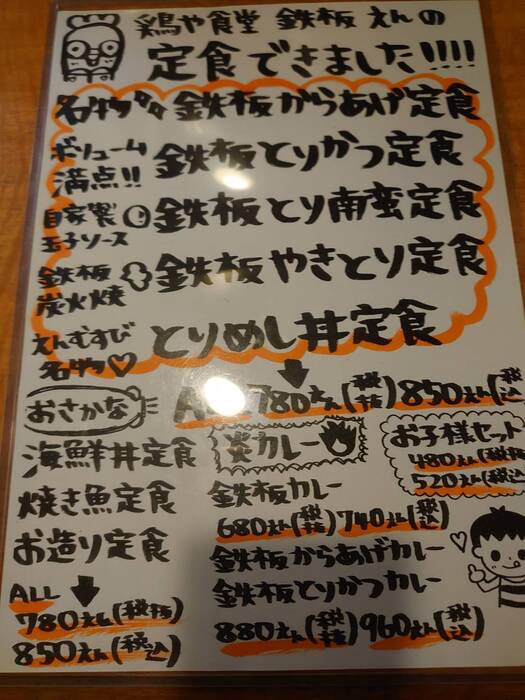 鶏や食堂 鉄板 えんの
定食できました!!!!
名物 鉄板からあげ定食
ボリューム
満点!! 鉄板とりかつ定食
自家製
玉子ソース 鉄板とり南蛮定食
鉄板
炭火焼 鉄板やきとり定食
えんむすび
名物♡ とりめし丼定食
ALL 780えん(税抜) 850えん(税込
おさかな
海鮮丼定食
焼き魚定食
お造り定食
ALL
780えん(税抜)
850えん(税込)
炎カレー
鉄板カレー
680えん(税抜) 740えん(税込)
鉄板からあげカレー
鉄板とりかつカレー
880えん(税抜) 960えん(税込)
お子様セット
480えん(税抜
520えん(税込)